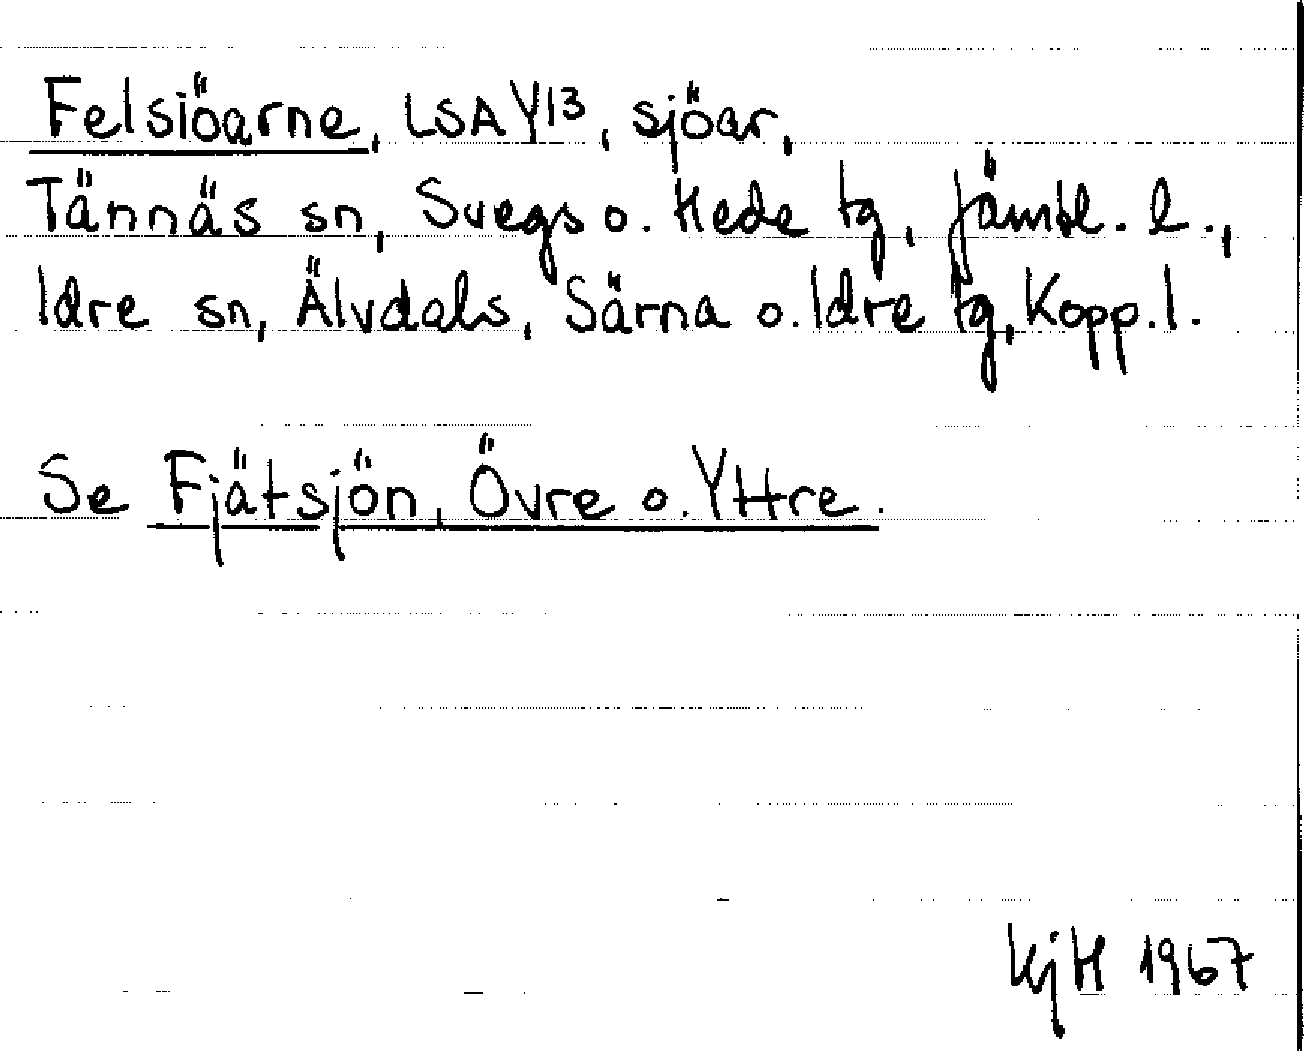 Felsiöarne, LSA Y13, sjöar,
Tännäs sn, Svegs o. Hede tg, Jämtl. l.,
Idre sn, Älvdals, Särna o. Idre tg, Kopp. l.
Se Fjätsjön, Övre o. Yttre.
KjH 1967